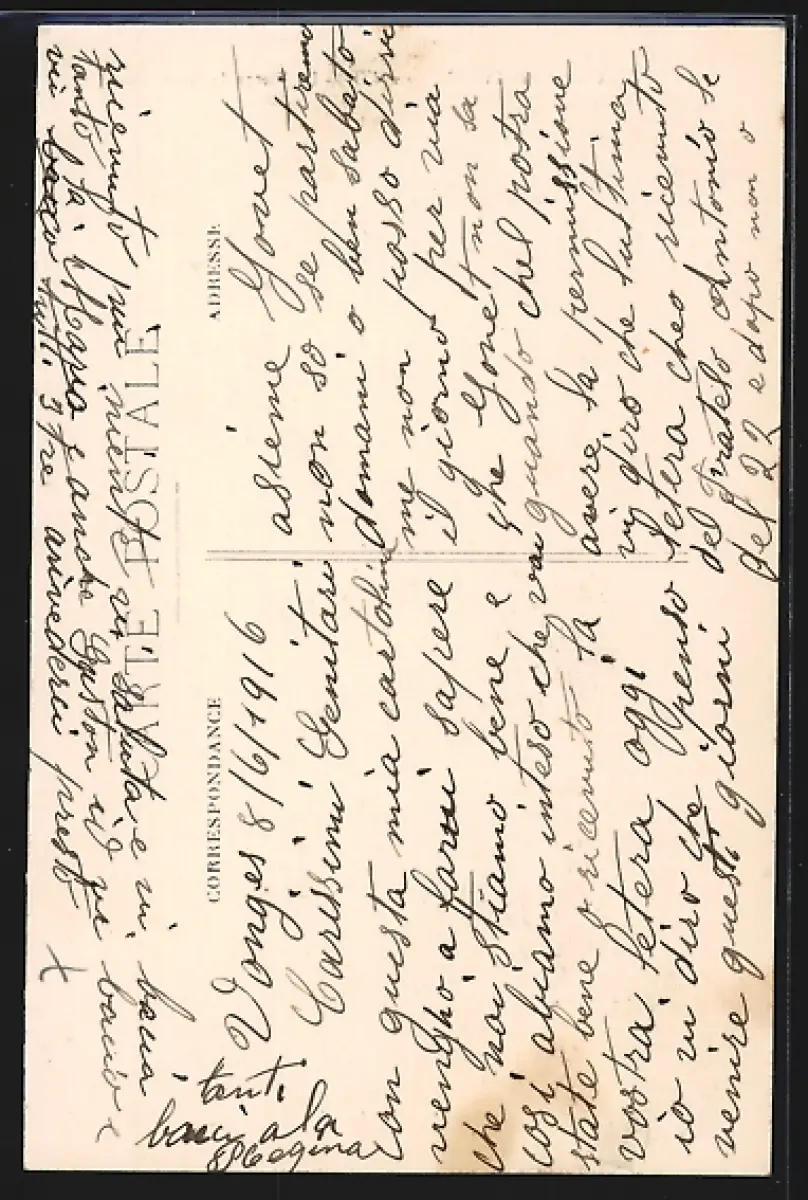 CARTE POSTALE
CORRESPONDANCE
ADRESSE
8/6/1916
Carissimi Genitori
con questa mia cartolina
vengho a farvi sapere
che noi stiamo bene e
cosi abiamo inteso che voi
state bene o ricevuto la
vostra letera oggi
io vi diro che penso
venire questi giorni
assieme Gonet
non so se partiremo
domani o ben sabato
me non posso dirvi
il giorno per via
che Gonet non sa
quando chel potra
avere la permissione
vi diro che lultima
letera cheo ricevuto
del Fratelo Antonio se
del 22 e dapo non o
ricevuto piu niente vi saluta e vi bacia
tanto la Maria e anche Gaston il ve bacio e
vi bacio tutti 3 tre arivederci presto
tanti
baci a la
Regina